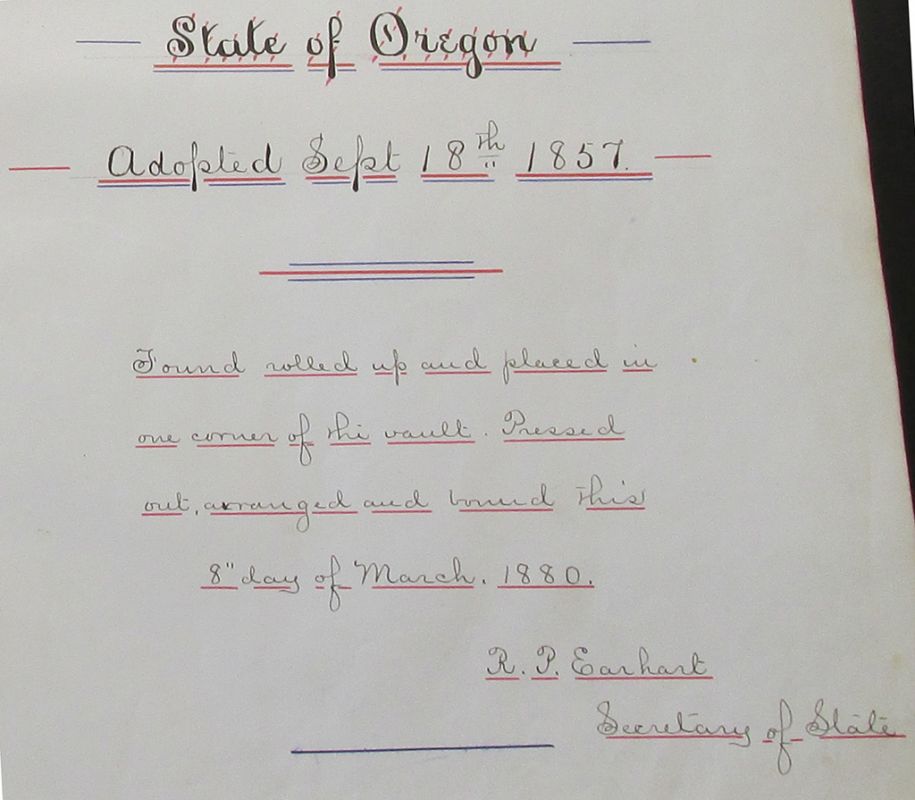 State of Oregon
Adopted Sept 18th 1857.
Found rolled up and placed in
one corner of the vault. Pressed
out, arranged and bound this
8" day of March. 1880.
R. P. Earhart
Secretary of State